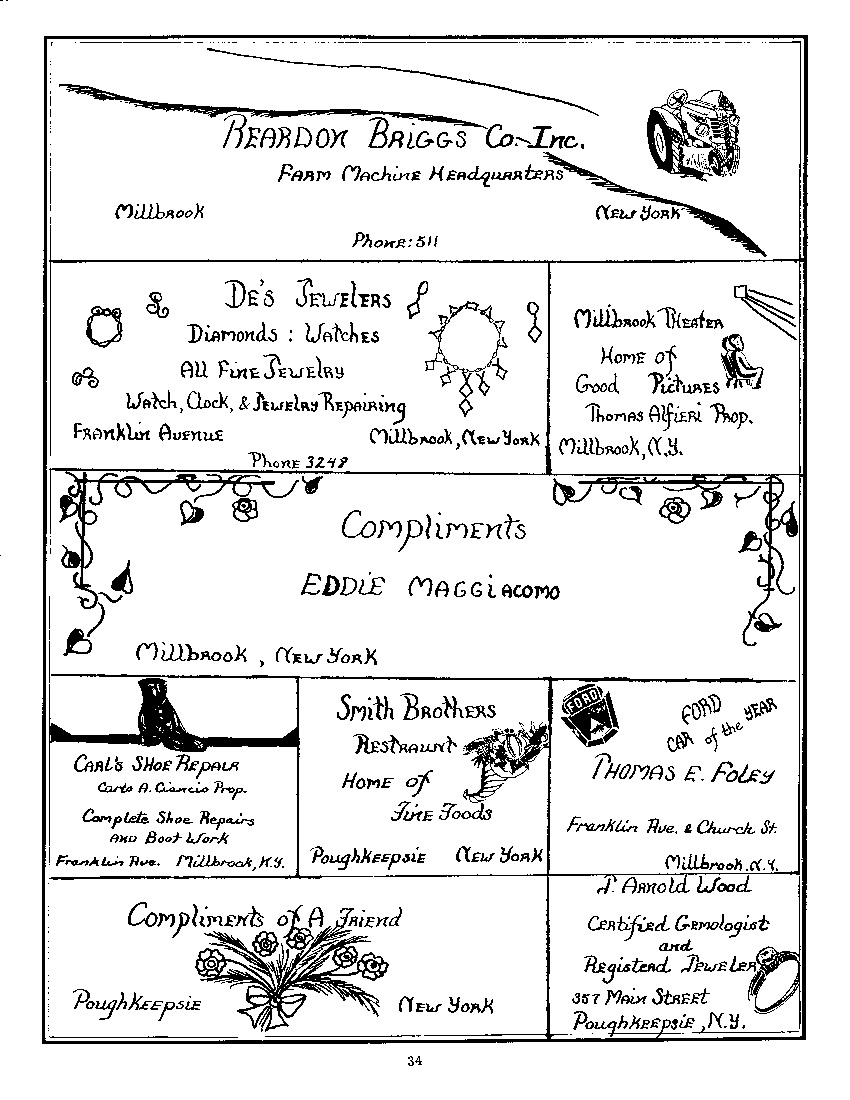 Reardon Briggs Co. Inc.
Farm Machine Headquarters
Millbrook New York
Phone: 511
De's Jewelers
Diamonds : Watches
All Fine Jewelry
Watch, Clock, & Jewelry Repairing
Franklin Avenue Millbrook, New York
Phone 3248
Millbrook Theater
Home of
Good Pictures
Thomas Alfieri Prop.
Millbrook, N.Y.
Compliments
Eddie Maggiacomo
Millbrook, New York
Carl's Shoe Repair
Carlo A. Ciancio Prop.
Complete Shoe Repairs
and Boot Work
Franklin Ave. Millbrook, N.Y.
Smith Brothers
Restraunt
Home of
Fine Foods
Poughkeepsie New York
FORD
FORD
CAR of the YEAR
Thomas E. Foley
Franklin Ave. & Church St.
Millbrook, N.Y.
Compliments of A Friend
Poughkeepsie New York
J. Arnold Wood
Certified Gemologist
and
Registerd Jeweler
357 Main Street
Poughkeepsie, N.Y.
34